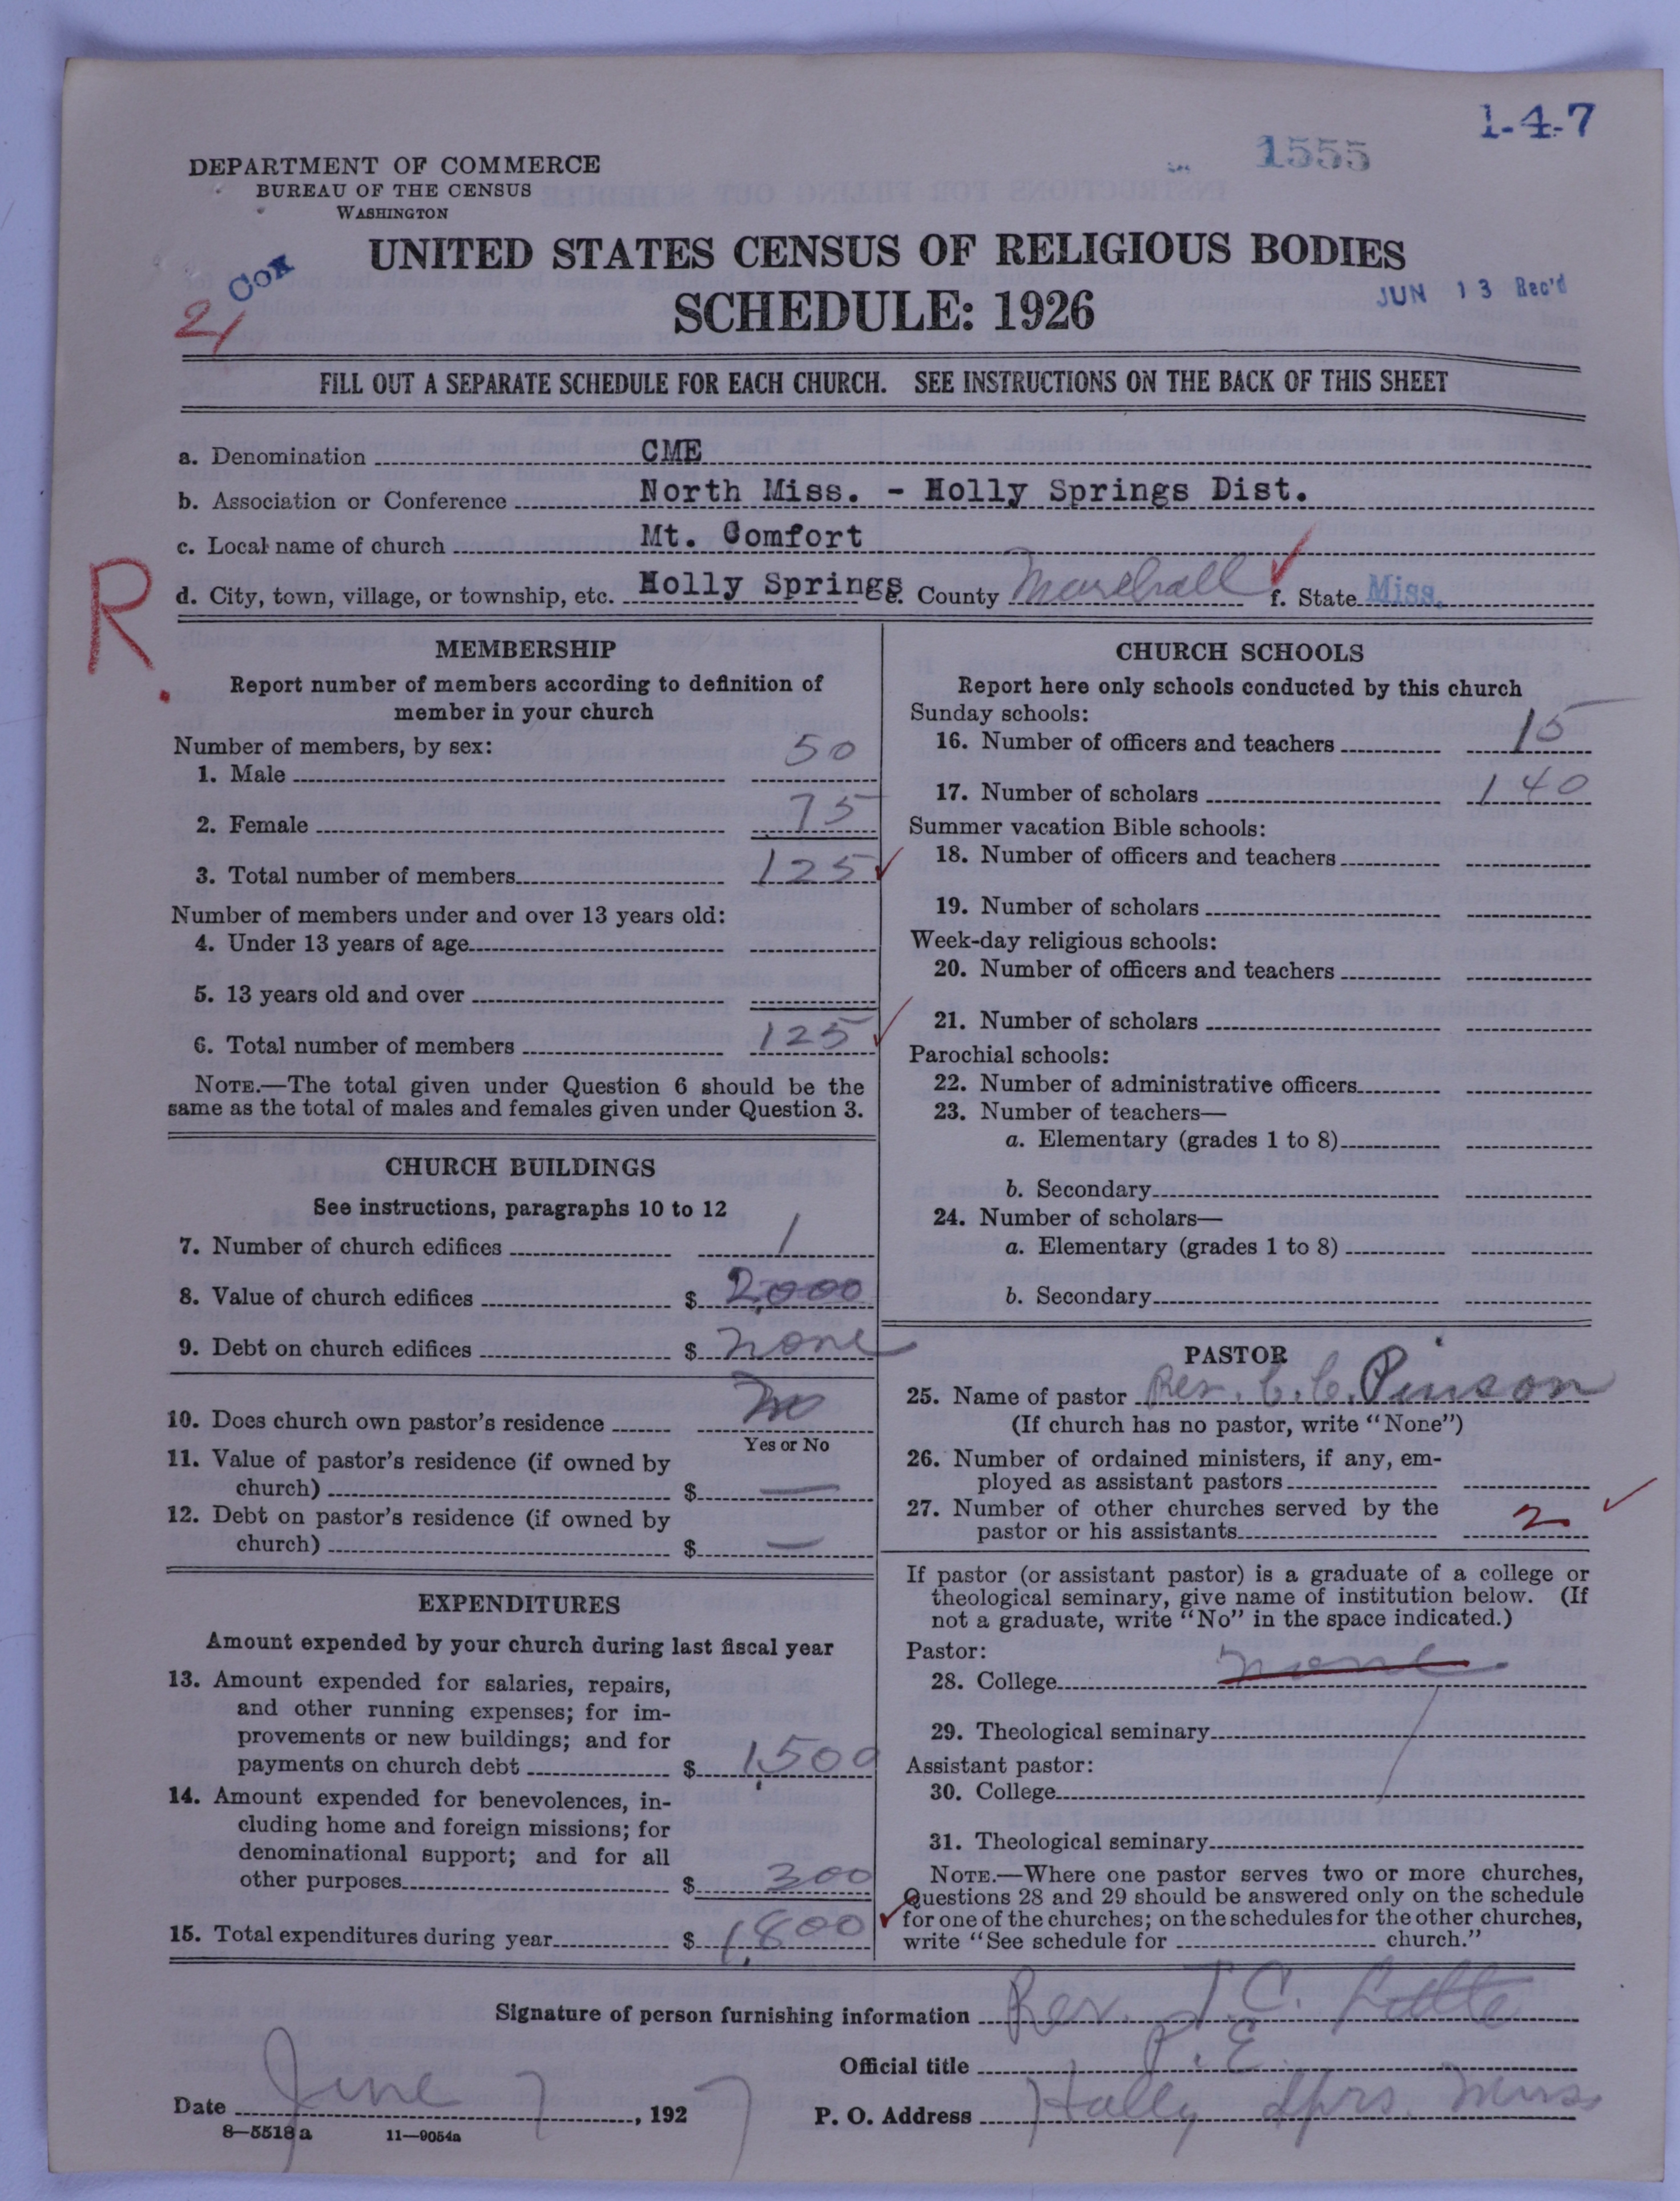 1-4-7
1555
DEPARTMENT OF COMMERCE
BUREAU OF THE CENSUS
WASHINGTON
UNITED STATES CENSUS OF RELIGIOUS BODIES
Cox
21
SCHEDULE: 1926
JUN 13 Rec'd
FILL OUT A SEPARATE SCHEDULE FOR EACH CHURCH. SEE INSTRUCTIONS ON THE BACK OF THIS SHEET
a. Denomination CME
b. Association or Conference North Miss. - Holly Springs Dist.
c. Local name of church Mt. Comfort
R.
d. City, town, village, or township, etc. Holly Springs e. County Marshall f. State Miss.
MEMBERSHIP
Report number of members according to definition of
member in your church
Number of members, by sex:
1. Male 50
2. Female 75
3. Total number of members 125
Number of members under and over 13 years old:
4. Under 13 years of age
5. 13 years old and over
6. Total number of members 125
NOTE.—The total given under Question 6 should be the
same as the total of males and females given under Question 3.
CHURCH BUILDINGS
See instructions, paragraphs 10 to 12
7. Number of church edifices 1
8. Value of church edifices $ 2,000
9. Debt on church edifices $ none
10. Does church own pastor's residence no
Yes or No
11. Value of pastor's residence (if owned by
church) $ —
12. Debt on pastor's residence (if owned by
church) $ —
EXPENDITURES
Amount expended by your church during last fiscal year
13. Amount expended for salaries, repairs,
and other running expenses; for im-
provements or new buildings; and for
payments on church debt $ 1,500
14. Amount expended for benevolences, in-
cluding home and foreign missions; for
denominational support; and for all
other purposes $ 300
15. Total expenditures during year $ 1,800
CHURCH SCHOOLS
Report here only schools conducted by this church
Sunday schools:
16. Number of officers and teachers 15
17. Number of scholars 140
Summer vacation Bible schools:
18. Number of officers and teachers
19. Number of scholars
Week-day religious schools:
20. Number of officers and teachers
21. Number of scholars
Parochial schools:
22. Number of administrative officers
23. Number of teachers—
a. Elementary (grades 1 to 8)
b. Secondary
24. Number of scholars—
a. Elementary (grades 1 to 8)
b. Secondary
PASTOR
25. Name of pastor Rev. C. C. Pinson
(If church has no pastor, write "None")
26. Number of ordained ministers, if any, em-
ployed as assistant pastors
27. Number of other churches served by the
pastor or his assistants 2
If pastor (or assistant pastor) is a graduate of a college or
theological seminary, give name of institution below. (If
not a graduate, write "No" in the space indicated.)
Pastor:
28. College none
29. Theological seminary
Assistant pastor:
30. College
31. Theological seminary
NOTE.—Where one pastor serves two or more churches,
Questions 28 and 29 should be answered only on the schedule
for one of the churches; on the schedules for the other churches,
write "See schedule for church."
Signature of person furnishing information Rev. T. C. Little
Official title P. E.
Date June 7, 1927 P. O. Address Holly Sprs. Miss
8—5518a 11—9054a